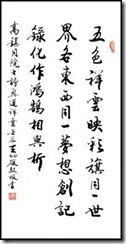 五色祥雲映彩旗同一世
界各東西同一夢想創記
録化作鴻鵠相與析
高鎮同院士詩奧運祥雲